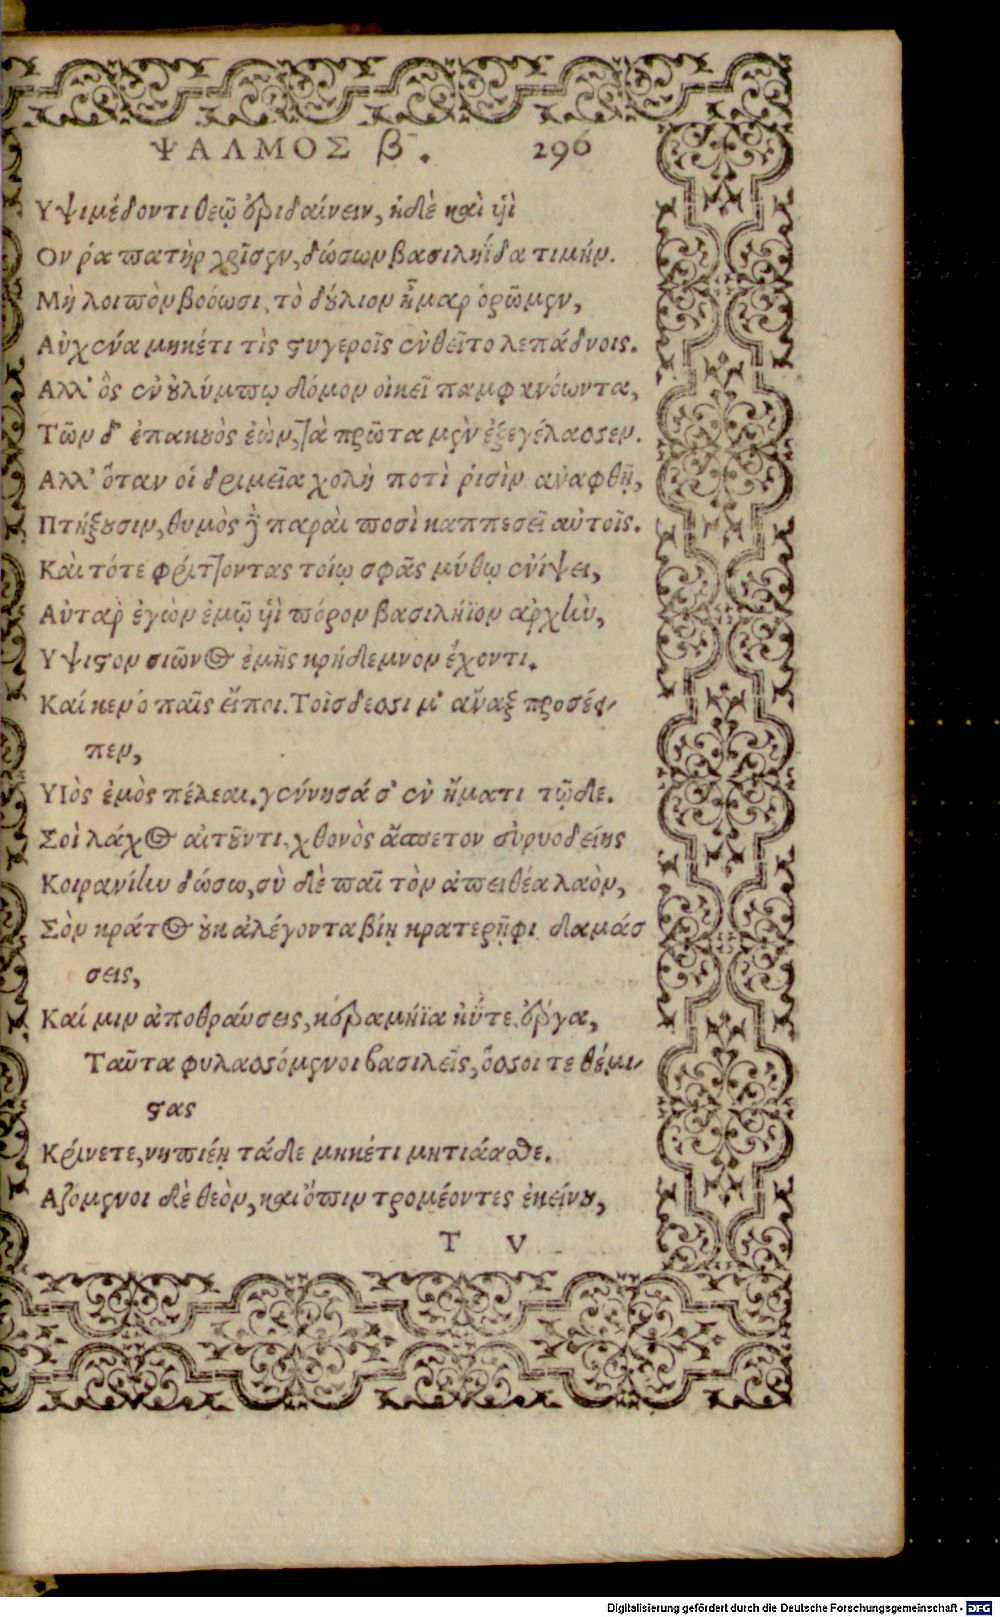 ΨΑΛΜΟΣ β. 296
Υψιμέδοντι θεῷ ἐριδαίνειν, ἠδὲ καὶ υἱὶ
Ον ῥα πατὴρ χρῖσεν, δώσων βασιληΐδα τιμήν.
Μὴ λοιπὸν βοόωσι τὸ δούλιον ἦμαρ ὁρῶμεν,
Αὐχένα μηκέτι τὶς στυγεροῖς ἐνθεῖτο λεπάδνοις.
Αλλ' ὃς ἐν οὐλύμπῳ δόμον οἰκεῖ παμφανόωντα,
Τῶν δ' ἐπακουὸς ἐὼν, τὰ πρῶτα μὲν ἐξεγέλασσεν.
Αλλ' ὅταν οἱ δριμεῖα χολὴ ποτὶ ῥισὶν ἀναφθῇ,
Πτήξουσιν, θυμὸς δὲ παραὶ ποσὶ καππεσεῖ αὐτοῖς.
Καὶ τότε φρίττοντας τοίῳ σφᾶς μύθῳ ἐνίψει,
Αὐτὰρ ἐγὼν ἐμῷ υἱὶ πόρον βασιλήϊον ἀρχὴν,
Υψιστον σιῶνος ἐμῆς κρήδεμνον ἔχοντι.
Καί κεν ὁ παῖς εἴποι. Τοῖσδεσσι μ' ἄναξ προσέε-
πεν,
Υἱὸς ἐμὸς πέλεαι. γέννησά σ' ἐν ἤματι τῷδε.
Σοὶ λάχος αἰτοῦντι, χθονὸς ἄσπετον εὐρυοδείης
Κοιρανίην δώσω, σὺ δὲ παῖ τὸν ἀπειθέα λαὸν,
Σὸν κράτος οὐκ ἀλέγοντα βίῃ κρατερῆφι δαμάσ
σεις,
Καί μιν ἀποθραύσεις, κεραμήϊα ἠΰτε ἔργα,
Ταῦτα φυλασσόμενοι βασιλεῖς, ὅσσοι τε θέμι-
στας
Κρίνετε, νηπιέῃ τάδε μηκέτι μητιάασθε.
Αζομενοι δὲ θεὸν, καὶ ὄπιν τρομέοντες ἐκείνου,
T V
Digitalisierung gefördert durch die Deutsche Forschungsgemeinschaft - DFG